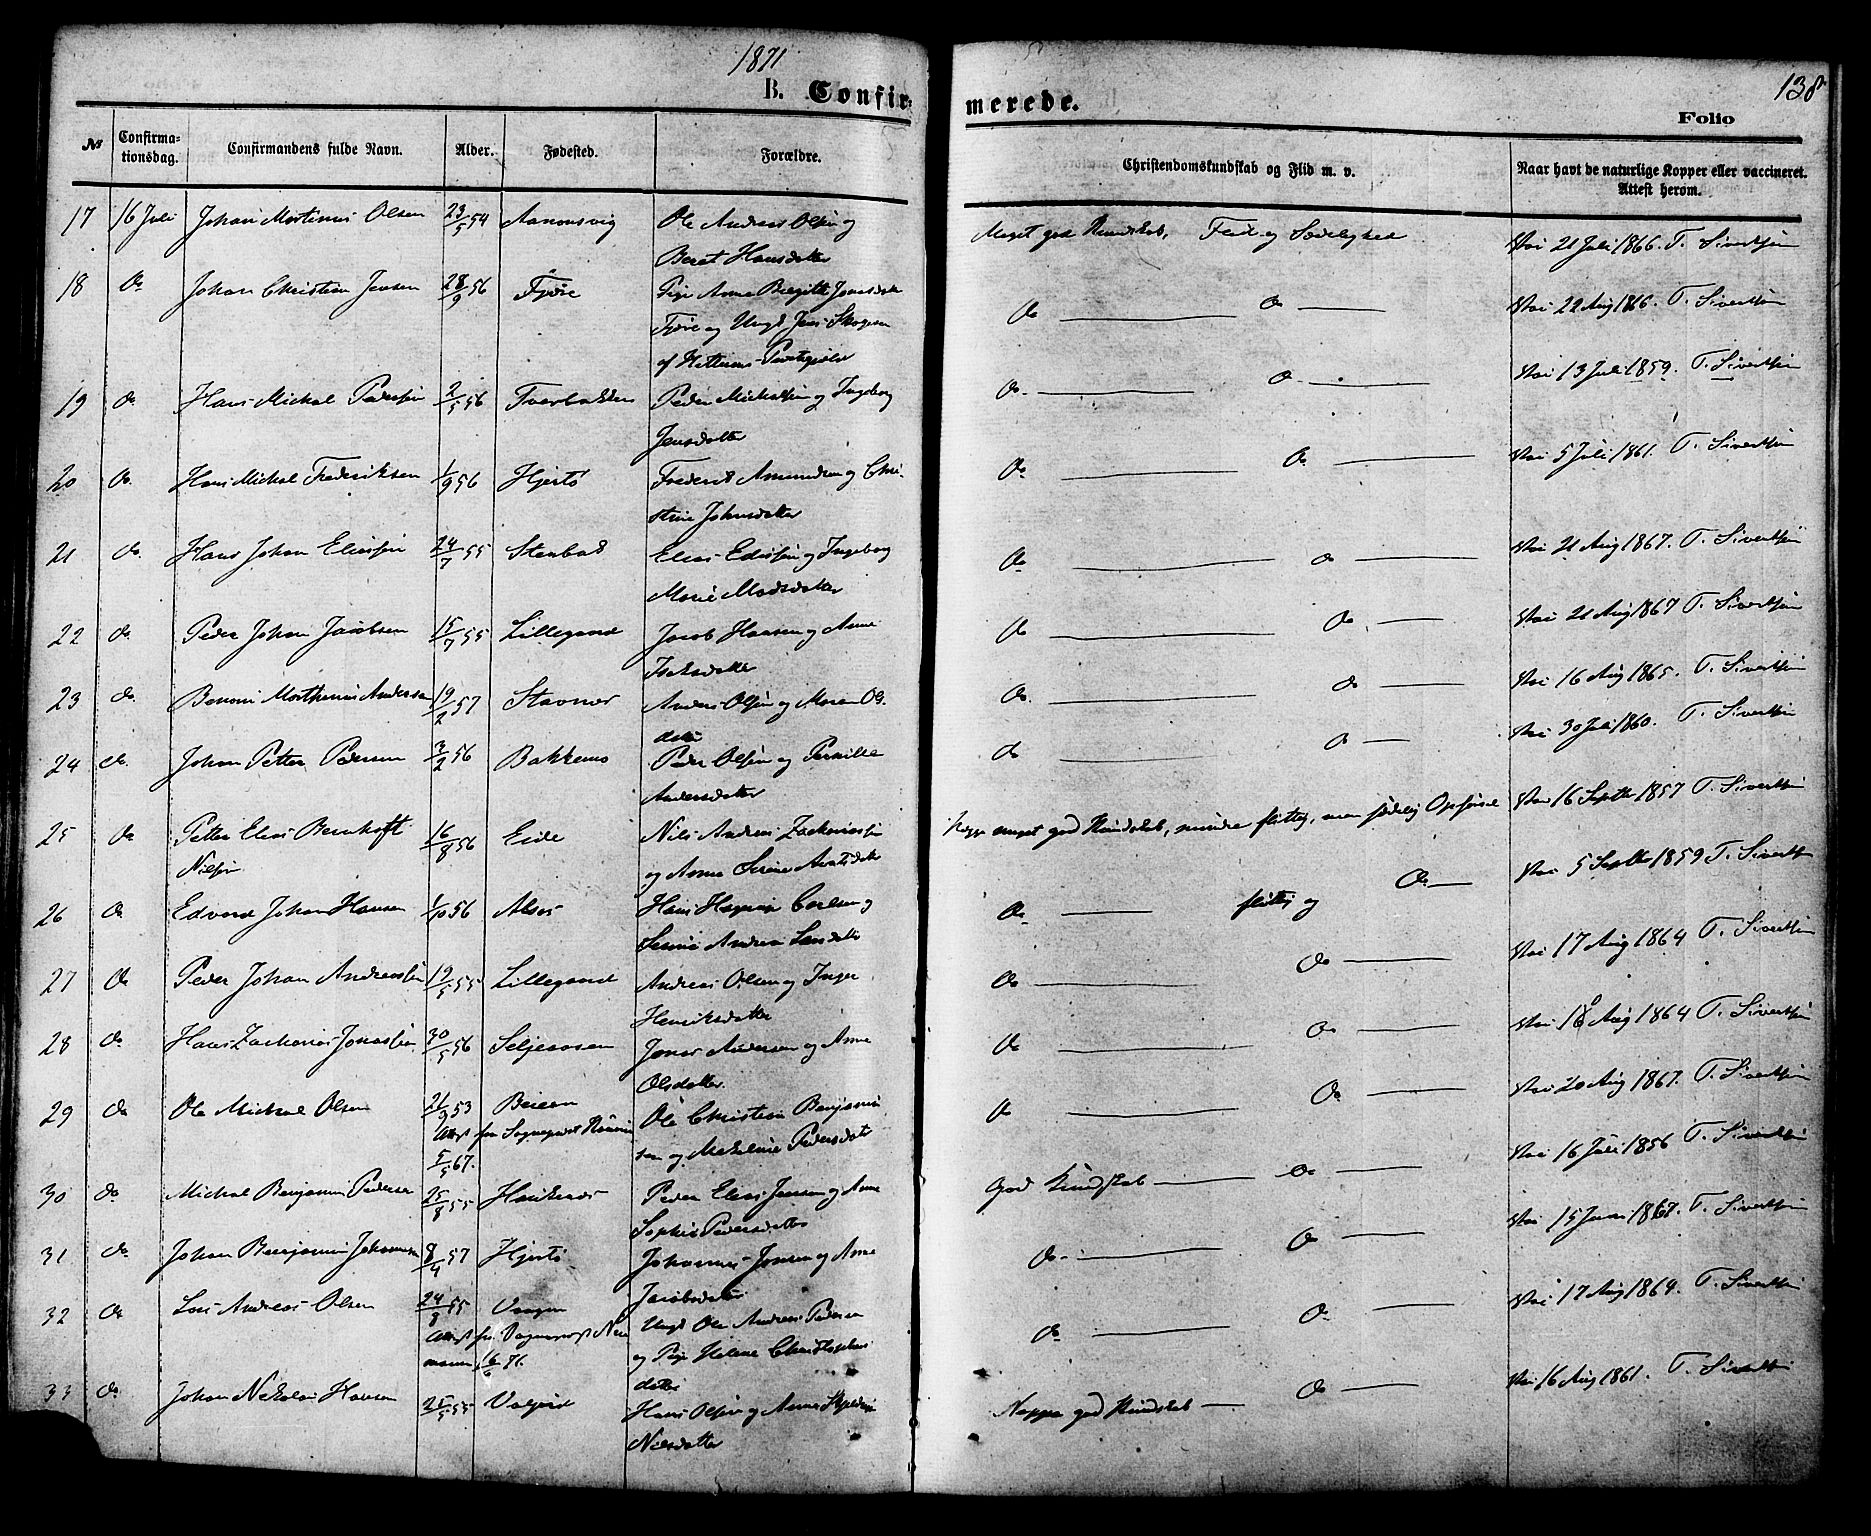 1871
138
B. Confir-
merede.
Folio
No
Confirma-
tionsdag.
Confirmandens fulde Navn.
Alder.
Fødested.
Forældre.
Christendomskundskab og Flid m. v.
Naar havt de naturlige Kopper eller vaccineret.
Attest herom.
17 16 Juli Johan Martinus Olsen 23/5 54 Aanonsvig Ole Andreas Olsen og
Beret Hansdatter
Meget god Kundskab, Flid og Sædelighed
Vac 21 Juli 1866. T. Sivertsen
18 do Johan Christian Jensen 28/9 56 Fjøre Pige Anne Birgitte
Fjøre og Ungk Jens
af
do do
Vac 22 Aug 1866. T. Sivertsen
19 do Hans Michal Pedersen 2/5 56 Tverbakken Peder Michalsen og Ingeborg
Jensdatter
do do
Vac 13 Juli 1859. T. Sivertsen
20 do Hans Michal Frederiksen 1/9 56 Hjertø Frederik Amundsen og Chri-
stine Johnsdatter
do do
Vac 5 Juli 1861. T. Sivertsen
21 do Hans Johan Eliassen 24/7 55 Stenbak Elias Eliassen og Ingeborg
Marie Madsdatter
do do
Vac 21 Aug 1867. T. Sivertsen
22 do Peder Johan Jacobsen 15/7 55 Lillegaard Jacob Hansen og Anne
Isaksdatter
do do
Vac 21 Aug 1867 T. Sivertsen
23 do Benoni Marthenius Andersen 19/2 57 Stavnes Anders Olsen og Maren Ols
datter
do do
Vac 16 Aug 1865. T. Sivertsen
24 do Johan Petter Pedersen 3/2 56 Bakkemo Peder Olsen og Pernille
Andersdatter
do do
Vac 30 Juli 1860. T. Sivertsen
25 do Petter Elias Bernhoft
Nilsen
16/8 56 Eide Nils Andreas Zachariassen
og Anne Serine
meget god Kundskab, mindre flittig, men sædelig Opførsel
Vac 16 Septbr 1857 T. Sivertsen
26 do Edvard Johan Hansen 1/10 56 Alsos Hans Carlsen og
Serine Andrea Larsdatter
do flittig og do
Vac 5 Septbr 1859 T. Sivertsen
27 do Peder Johan Andreassen 19/5 55 Lillegaard Andreas Olsen og Inger
Henriksdatter
do do
Vac 17 Aug 1864 T. Sivertsen
28 do Hans Zacharias Jonassen 30/5 56 Seljeaasen Jonas Andersen og Anne
Olsdatter
do do
Vac 18 Aug 1864 T. Sivertsen
29 do Ole Michal Olsen 21/9 53 Beiern Ole Christian Benjamin
Attst fra Sogneprest
5/5 67.
sen og Pedersdat
do do
Vac 20 Aug 1867. T. Sivertsen
30 do Michal Benjamin Pedersen 25/8 55 Peder Elias Jensen og Anne
Sophie Pedersdatter
God Kundskab do
Vac 16 Juli 1856 T. Sivertsen
31 do Johan Benjamin Johannesen 8/4 57 Hjertø Johannes Jonsen og Anne
Jacobsdatter
do do
Vac 15 Juni 1867. T. Sivertsen
32 do Lars Andreas Olsen 24/8 55 Vaagan Ungk Ole Andreas Pedersen
Attst fra Sogneprest
16/6 71.
og Pige Helene Christophers
datter
do do
Vac 17 Aug 1864. T. Sivertsen
33 do Johan Nikolai Hansen 25/5 55 Valjord Hans Olsen og Anne
Nilsdatter
Neppe god Kundskab do
Vac 16 Aug 1861. T. Sivertsen